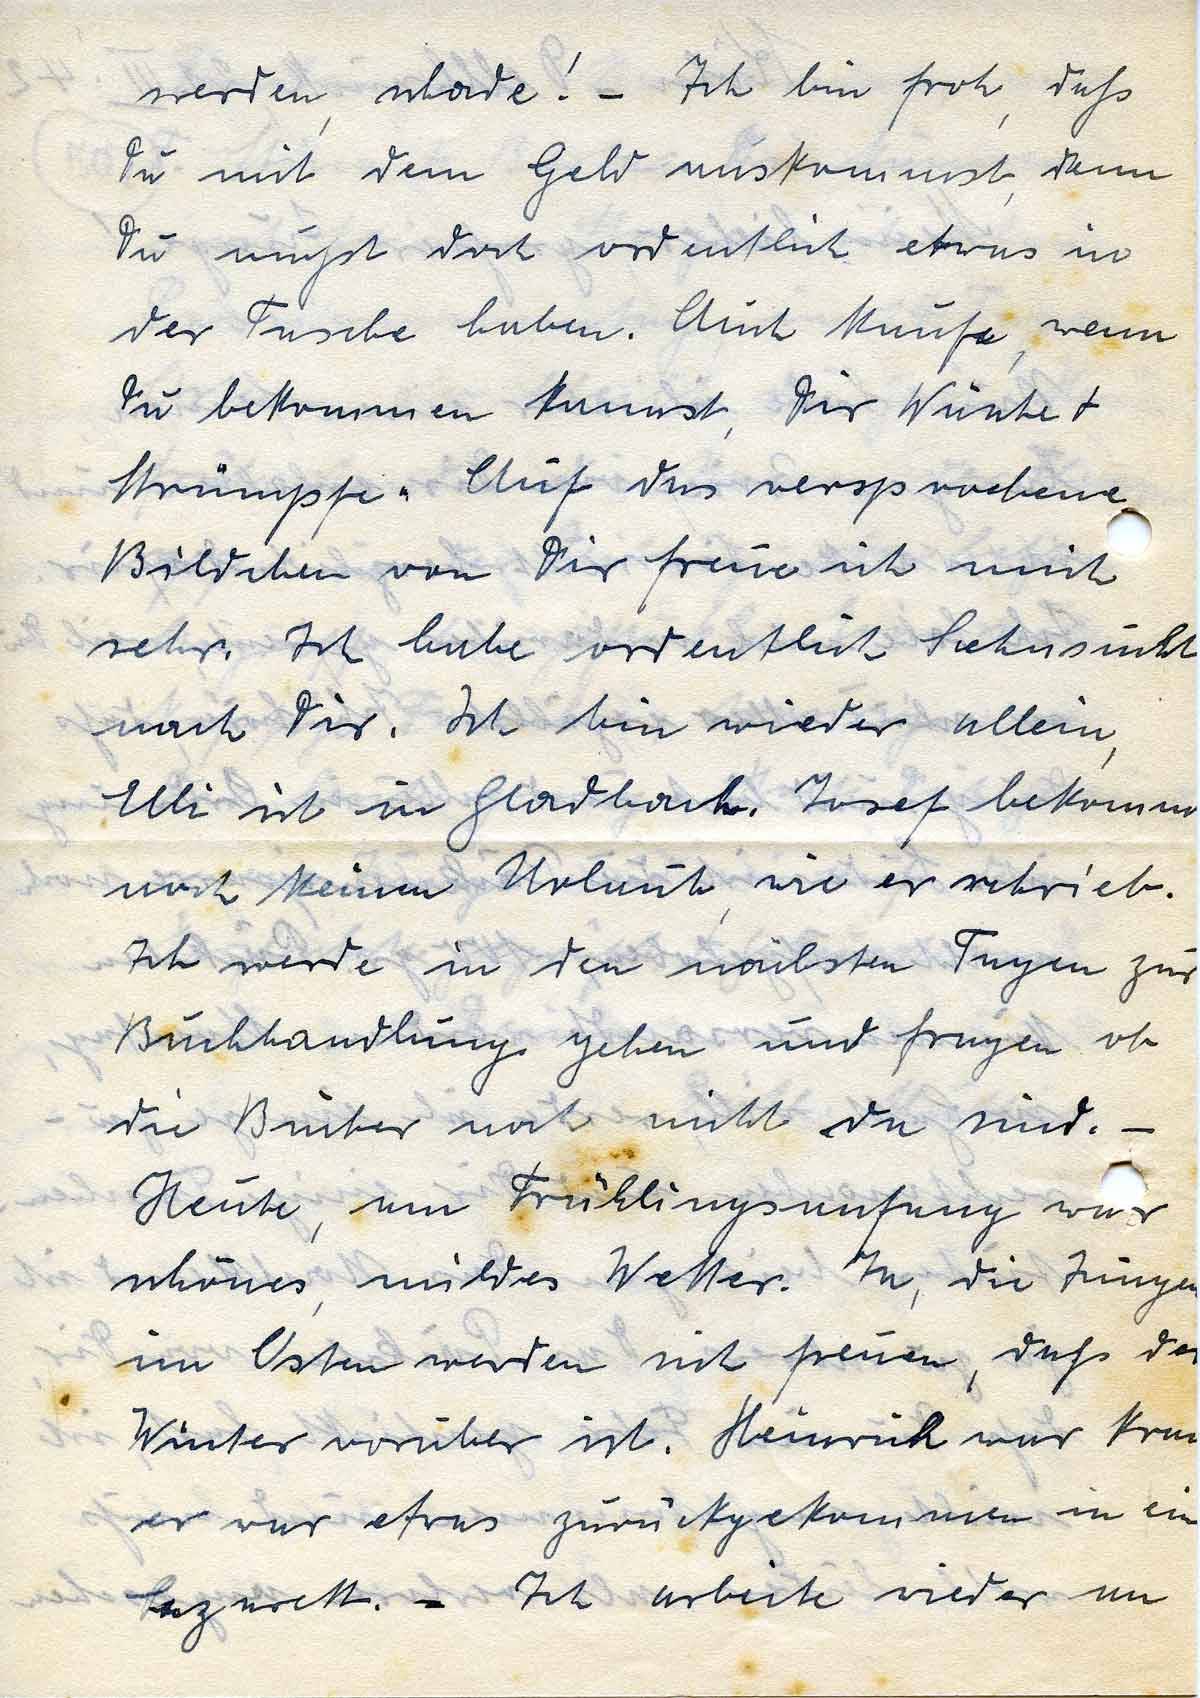 werden, schade! – Ich bin froh, daß
Du mit dem Geld auskommst, denn
Du mußt doch ordentlich etwas in
der Tasche haben. Auch kaufe, wenn
Du bekommen kannst, Dir Wäsche +
Strümpfe. Auf das versprochene
Bildchen von Dir freue ich mich
sehr. Ich habe ordentlich Sehnsucht
nach Dir. Ich bin wieder allein,
Elli ist in Gladbach. Josef bekomm
noch keinen Urlaub, wie er schrieb.
Ich werde in den nächsten Tagen zur
Buchhandlung gehen und fragen ob
die Bücher noch nicht da sind. –
Heute, am Frühlingsanfang war
schönes, mildes Wetter. Ja, die Jungen
im Osten werden sich freuen, daß der
Winter vorüber ist. Heinrich war kran
er war etwas zurückgekommen in ein
Lazarett. – Ich arbeite wieder an